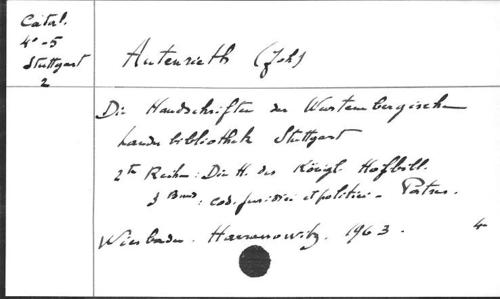 Catal.
4° - 5
Stuttgart
2
Autenrieth (Joh)
Die Handschriften der Wurtembergischen
Landesbibliothek Stuttgart
2te Reihe: Die H. der Königl. Hofbibl.
3 Band: cod. juridici et politici - Patres.
Wiesbaden. Harrassowitz. 1963.
4°